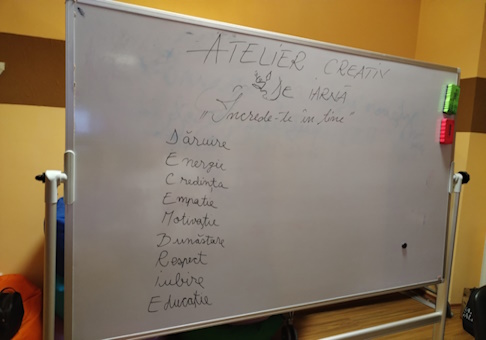 ATELIER CREATIV
De IARNĂ
„Încrede-te în tine"
Dăruire
Energie
Credința
Empatie
Motivație
Bunăstare
Respect
iubire
Educație